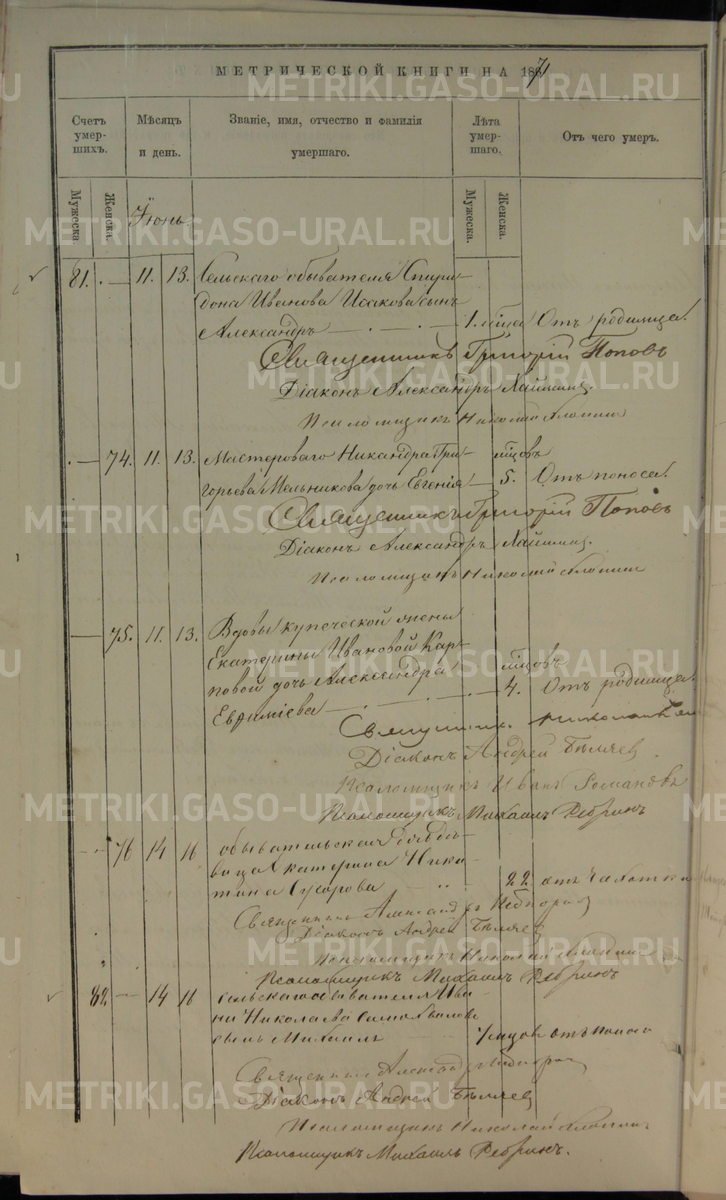 МЕТРИЧЕСКОЙ КНИГИ НА 1871
Счетъ умершихъ.
Мѣсяцъ и день.
Званіе, имя, отчество и фамилія умершаго.
Лѣта умершаго.
Отъ чего умеръ.
Мужеска.
Женска.
Мужеска.
Женска.
Іюнь.
81. — 11. 13. Сельскаго обывателя Спири-
дона Иванова Исакова сынъ
Александръ — 1. мѣсяца Отъ родимца.
Священникъ Григорій Поповъ
Діаконъ Александръ
Псаломщикъ Николай
— 74. 11. 13. Мастероваго Никандра Гри- мѣсцовъ
горьева Мельникова дочь Евгенія — 5. Отъ поноса.
Священникъ Григорій Поповъ
Діаконъ Александръ
Псаломщикъ Николай
— 75. 11. 13. Вдовы купеческой жены
Екатерины Ивановой Кар-
повой дочь Александра мѣсцовъ
Евфиміева — 4. Отъ родимца.
Священникъ
Діаконъ Андрей Бѣляев
Псаломщикъ Иванъ Романовъ
Псаломщикъ Михаилъ Ребринъ
76 14 16 обывательская
вица Екатерина Ники-
тина Сухорова 22 отъ чахотки
Священникъ Александръ
Діаконъ Андрей Бѣляев
Псаломщикъ Николай
Псаломщикъ Михаилъ Ребринъ
82. — 14 16 сельскаго обывателя Ива-
на Николаева
сынъ Михаилъ 7 мѣсцов отъ поноса
Священникъ Александръ
Діаконъ Андрей Бѣляев
Псаломщикъ Николай
Псаломщикъ Михаилъ Ребринъ.
METRIKI.GASO-URAL.RU